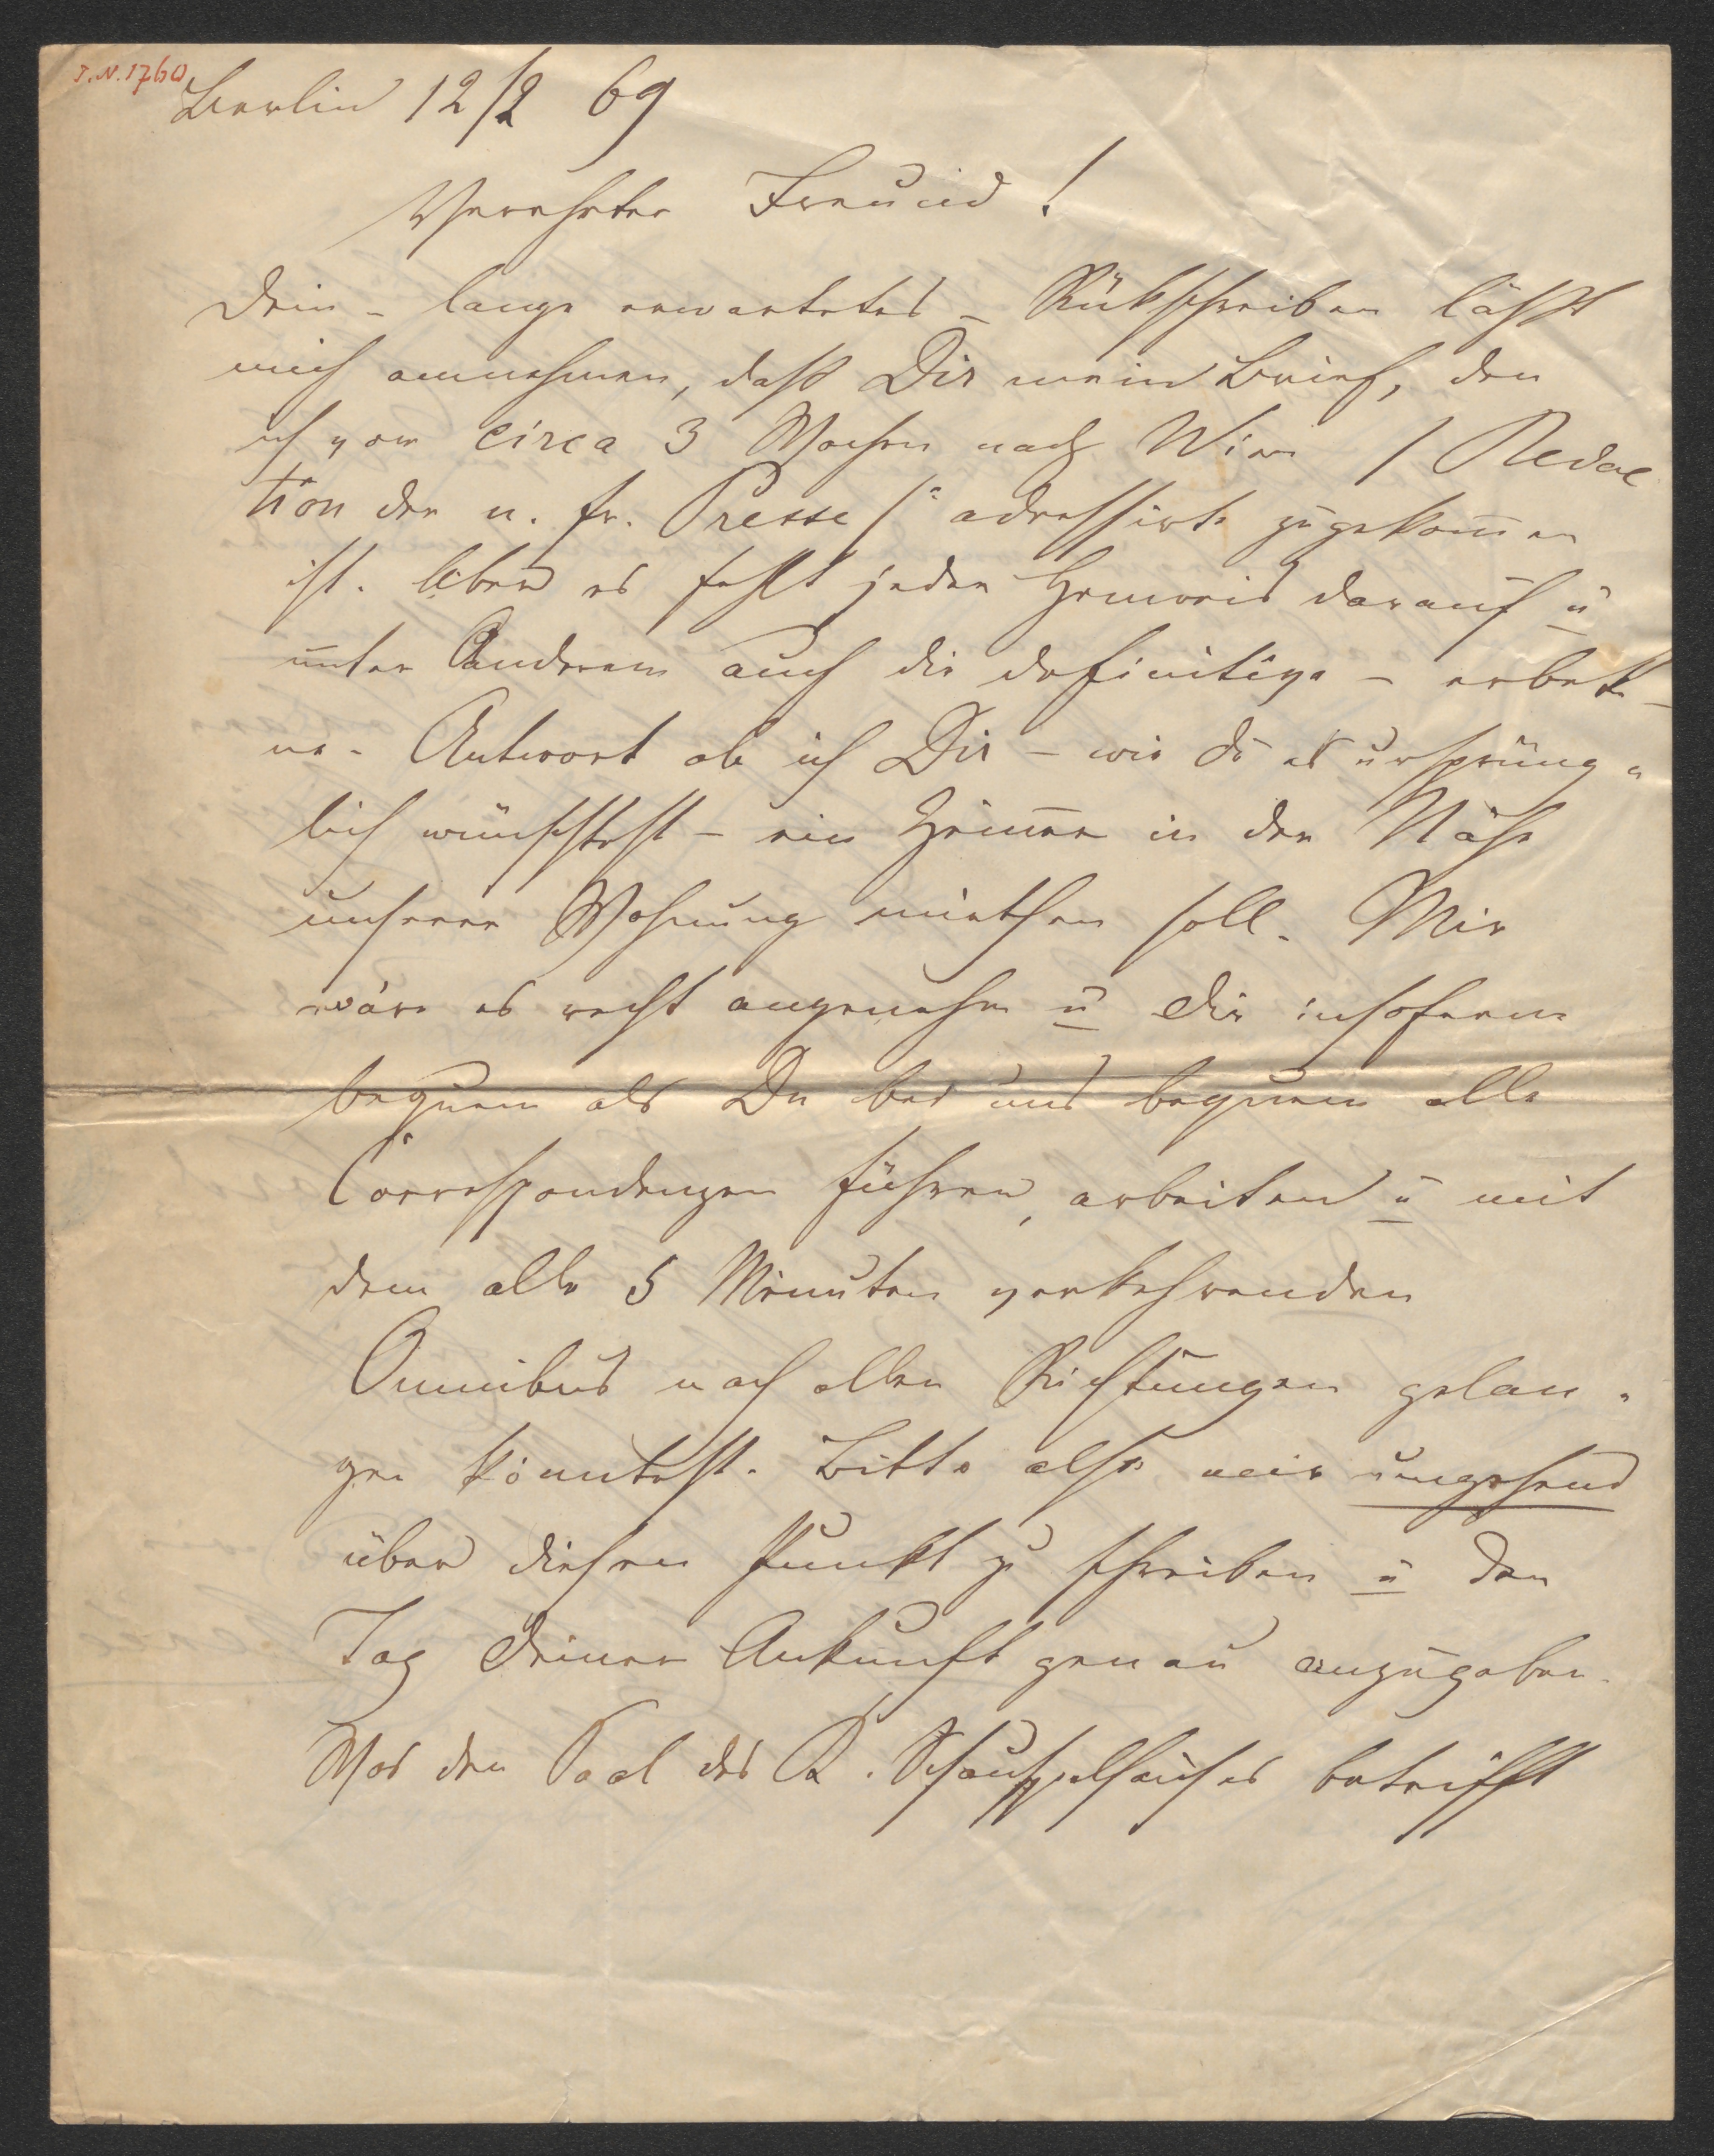 I.N. 1760
Berlin 12/2 69
Verehrter Freund!
Dein – lange erwartetes – Rükschreiben läßt
mich annehmen, daß Dir mein Brief, den
ich vor circa 3 Wochen nach Wien / Redac
tion der n. fr. Presse / adressirte zugekom̅en
ist. Aber es fehlt jeder Hinweis darauf u
unter Anderem auch die definitive – erbete
ne – Antwort ob ich Dir – wie du es ursprüng-
lich wünschtest – ein Zim̅er in der Nähe
unserer Wohnung miethen soll. Mir
wäre es recht angenehm u Dir insofern
bequem als Du bei uns bequem alle
Correspondenzen führen, arbeiten u mit
dem alle 5 Minuten verkehrenden
Omnibus nach allen Richtungen gelan-
gen könntest. Bitte also mir umgehend
über diesen Punkt zu schreiben u den
Tag Deiner Ankunft genau anzugeben.
Was den Saal des K. Schauspielhauses betrifft